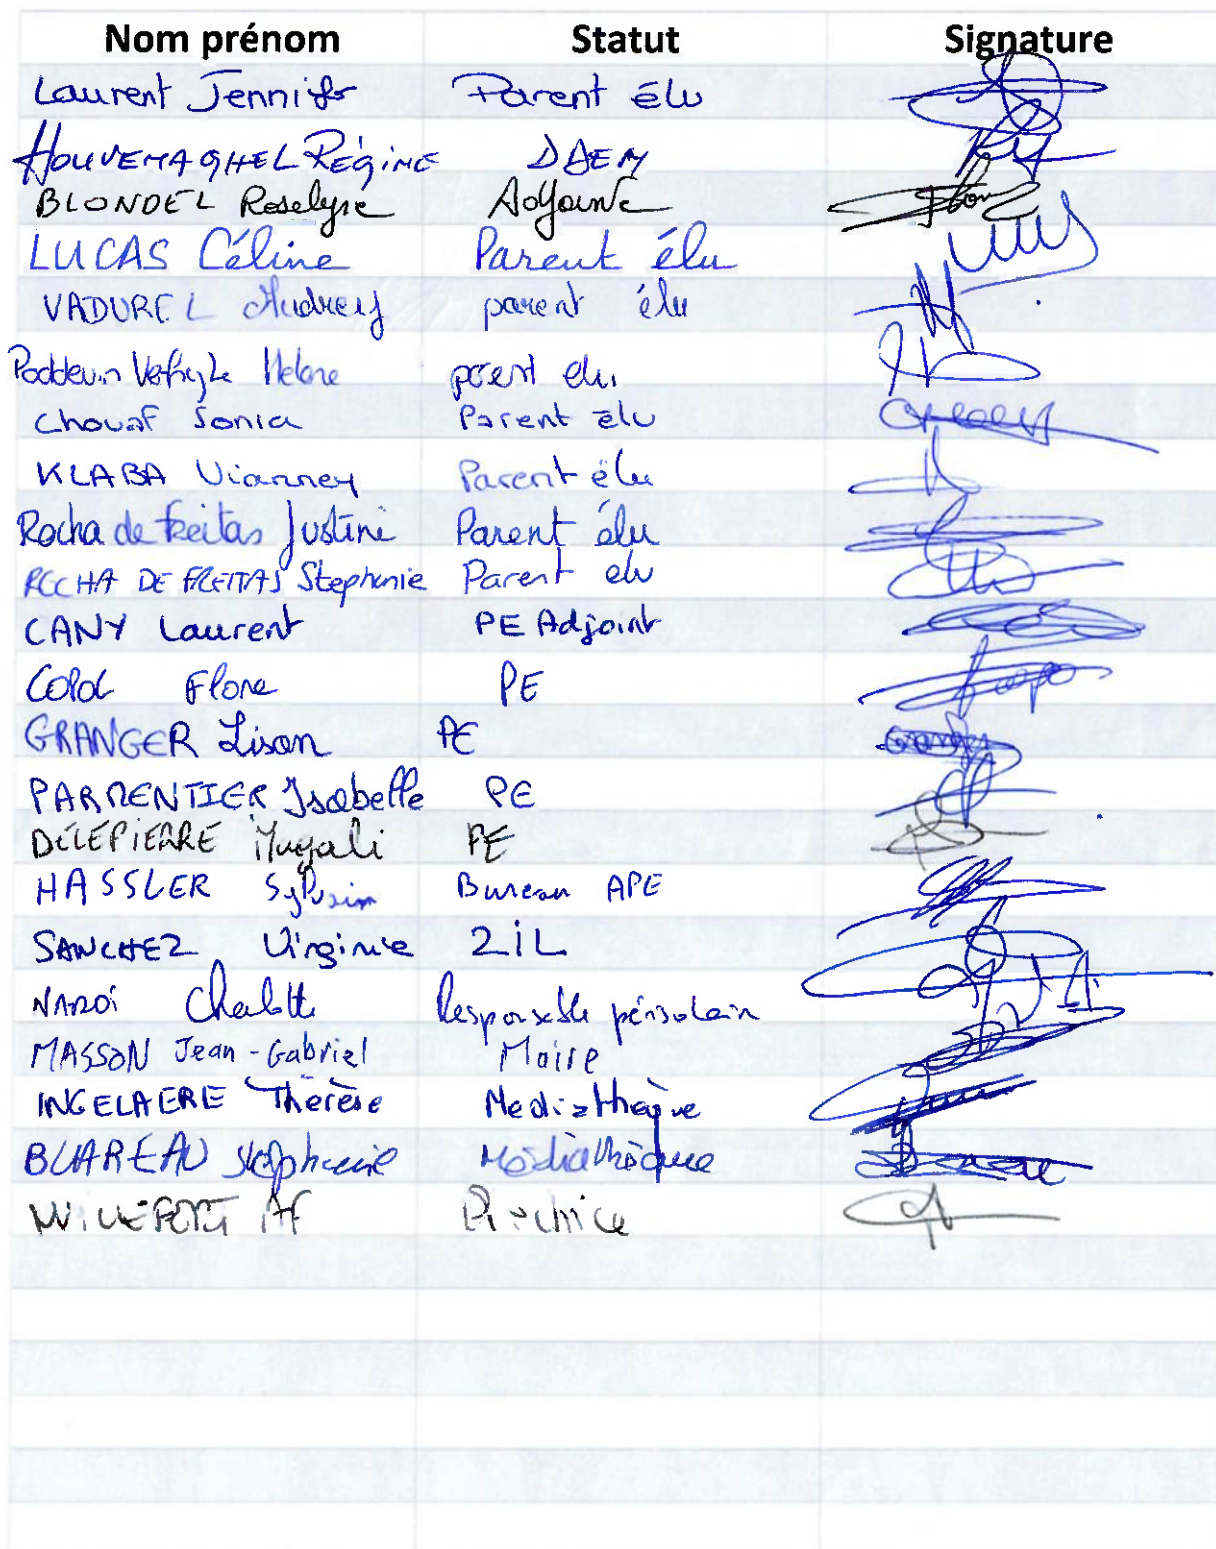 Nom prénom Statut Signature
Laurent Jennifer Parent élu
HOUVENAGHEL Régine DDEN
BLONDEL Roselyne Adjointe
LUCAS Céline Parent élu
VADUREL Audrey parent élu
Helene parent élu
Chouaf Sonia Parent élu
KLABA Vianney Parent élu
Rocha de Freitas Justine Parent élu
ROCHA DE FREITAS Stephanie Parent elu
CANY Laurent PE Adjoint
Flore PE
GRANGER Lison PE
PARMENTIER Isabelle PE
DELEPIERRE Magali PE
HASSLER Sylvain Bureau APE
SANCHEZ Virginie ZIL
NARDI Charlotte Responsable périscolaire
MASSON Jean-Gabriel Maire
INGELAERE Thérèse Mediathèque
BLAREAU Stéphanie Médiathèque
AF Directrice